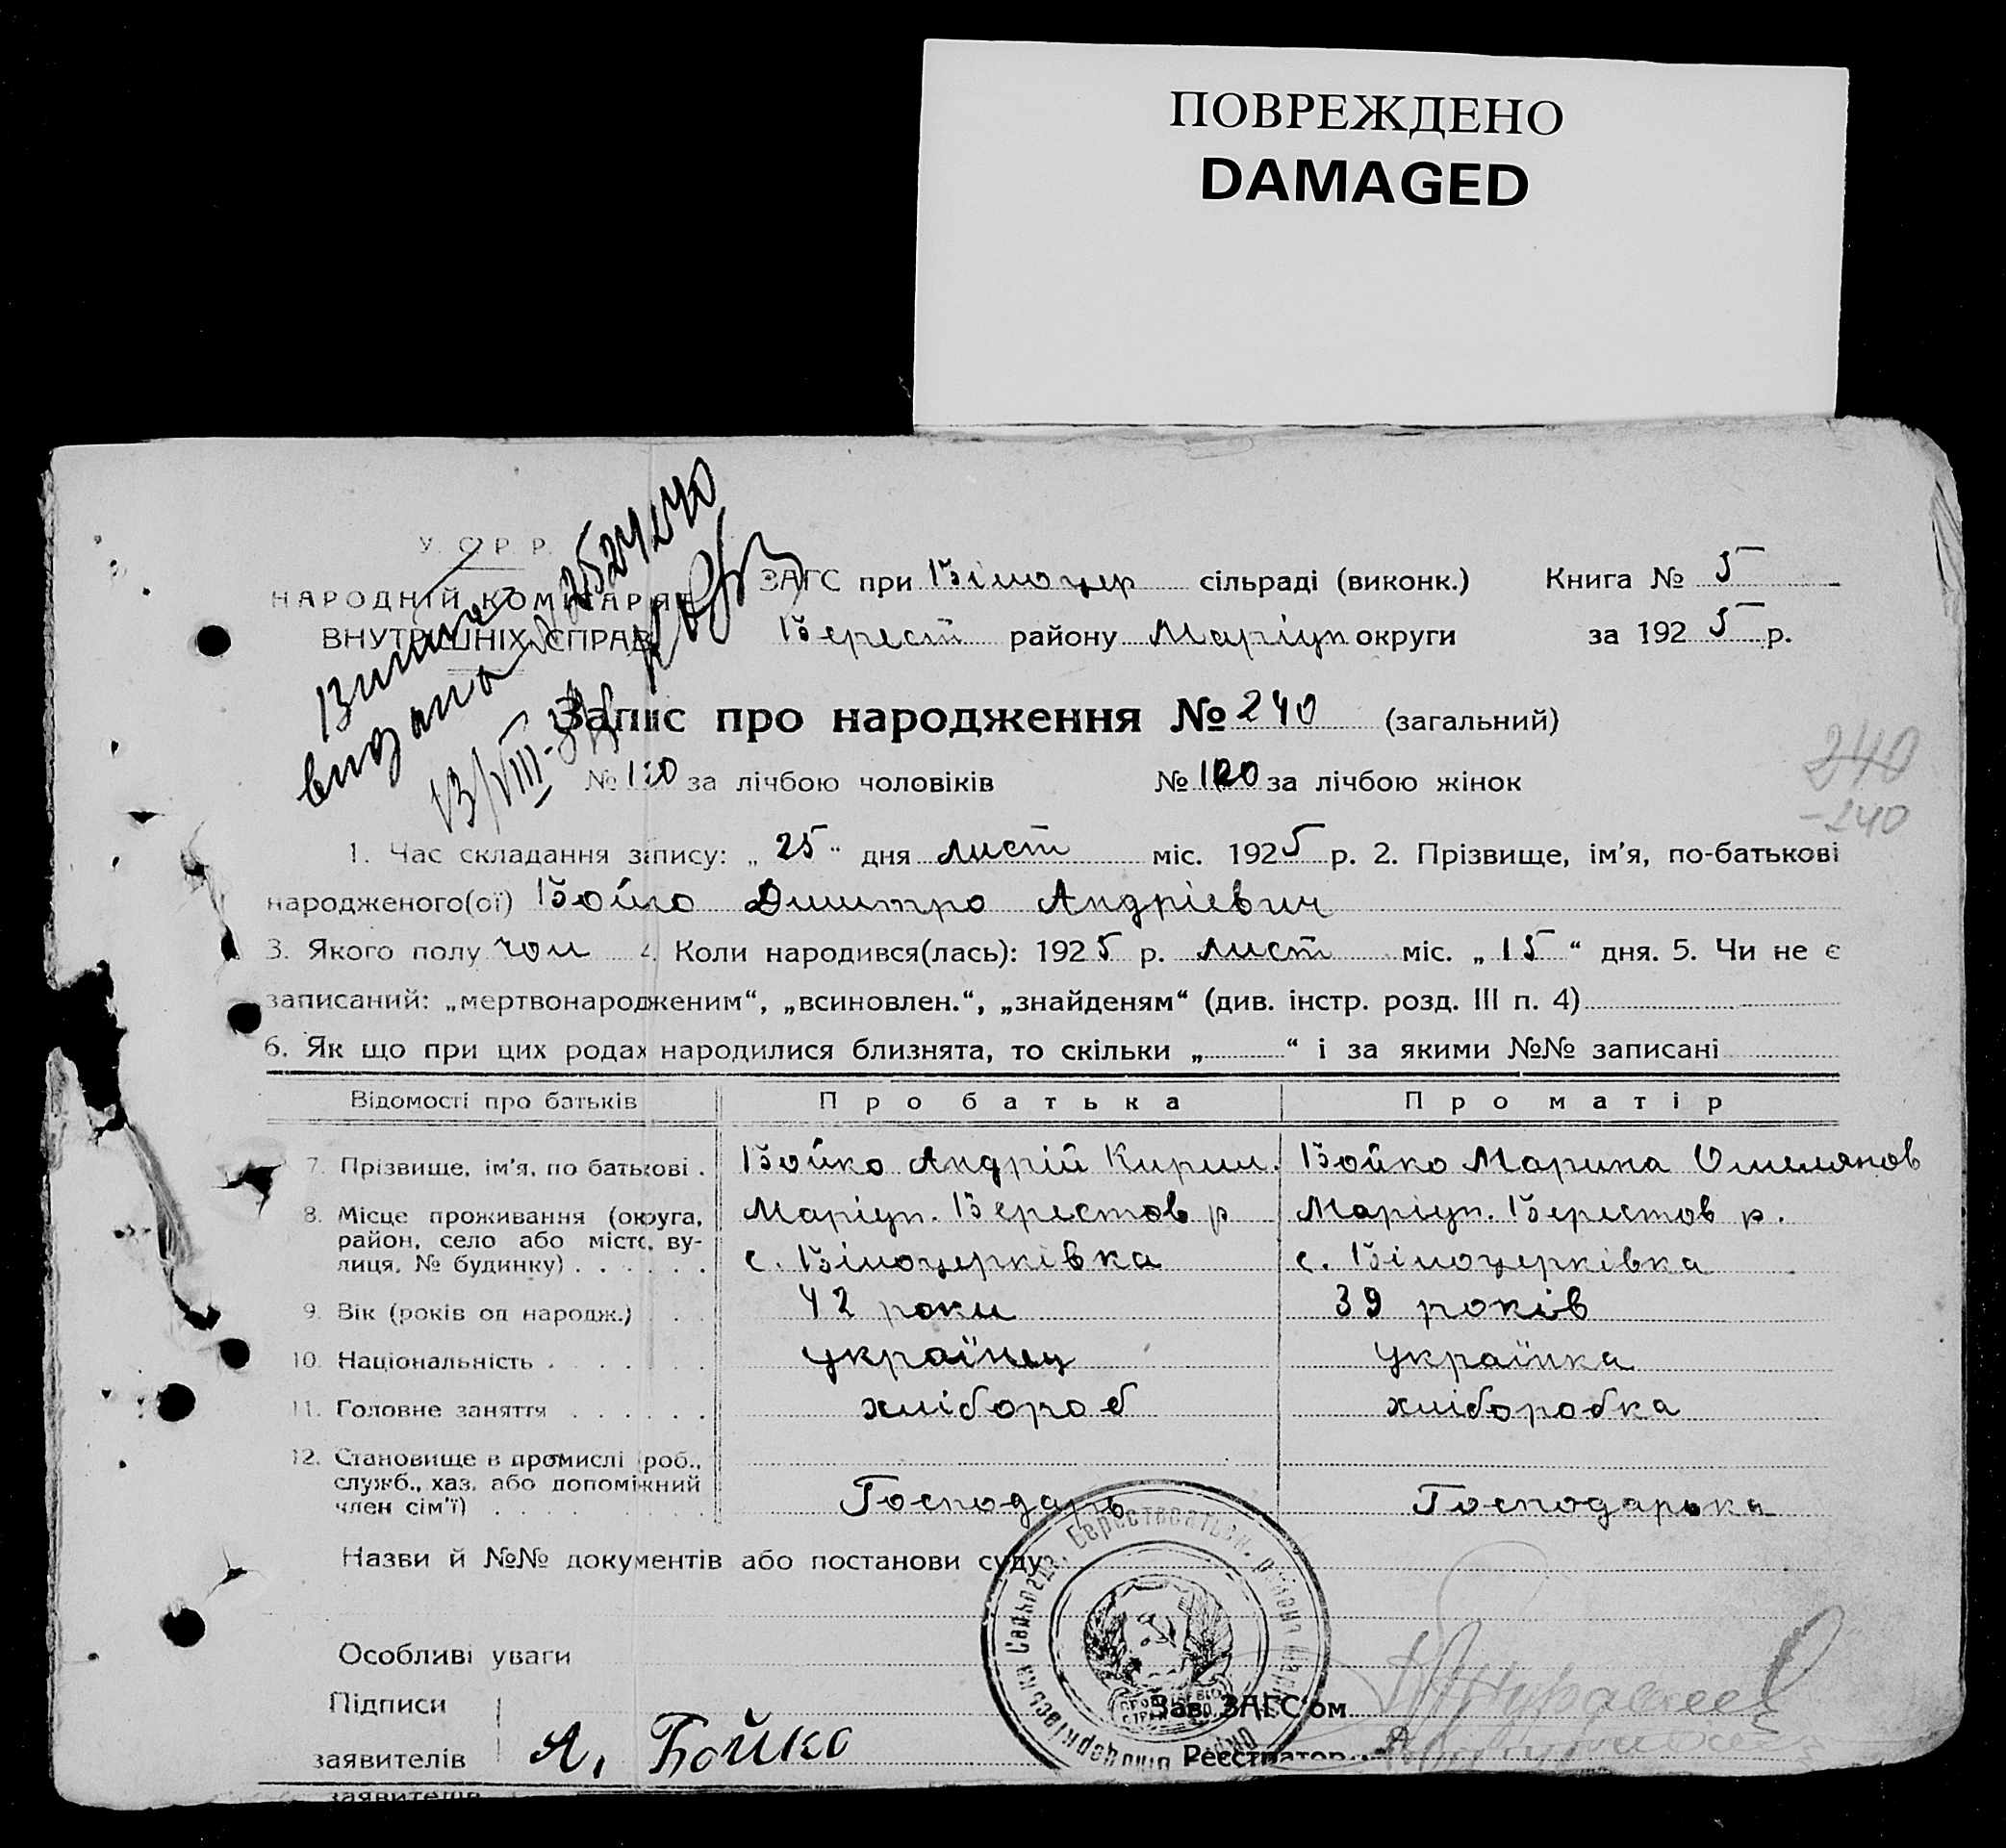 ПОВРЕЖДЕНО
DAMAGED
У. С. Р. Р.
НАРОДНІЙ КОМІСАРІЯТ
ВНУТРІШНІХ СПРАВ
видана
13/VIII
ЗАГС при Білоцер сільраді (виконк.) Книга № 5
Берест району Маріуп округи за 1925 р.
Запис про народження № 240 (загальний)
№ 120 за лічбою чоловіків № 120 за лічбою жінок
240
-240
1. Час складання запису: „25“ дня лист міс. 1925 р. 2. Прізвище, ім'я, по-батькові
народженого(ої) Бойко Дмитро Андрієвич
3. Якого полу чол 4. Коли народився(лась): 1925 р. лист міс. „15“ дня. 5. Чи не є
записаний: „мертвонародженим“, „всиновлен.“, „знайденям“ (див. інстр. розд. III п. 4)
6. Як що при цих родах народилися близнята, то скільки „ “ і за якими №№ записані
Відомості про батьків Про батька Про матір
7. Прізвище, ім'я, по батькові . Бойко Андрій Кирил. Бойко Марина Омелянов
8. Місце проживання (округа, Маріуп. Берестов р Маріуп. Берестов р.
район, село або місто, ву-
лиця, № будинку) . . . . . . с. Білоцерківка с. Білоцерківка
9. Вік (років од народж.) . . . 42 роки 39 років
10. Національність . . . . . . українец українка
11. Головне заняття . . . . . . хлібороб хліборобка
12. Становище в промислі (роб.,
служб., хаз. або допоміжний
член сім'ї) . . . . . . . . Господарь Господарька
Назви й №№ документів або постанови суду
Особливі уваги
Підписи Зав. ЗАГС'ом
заявителів А. Бойко Реєстратор
заявителів